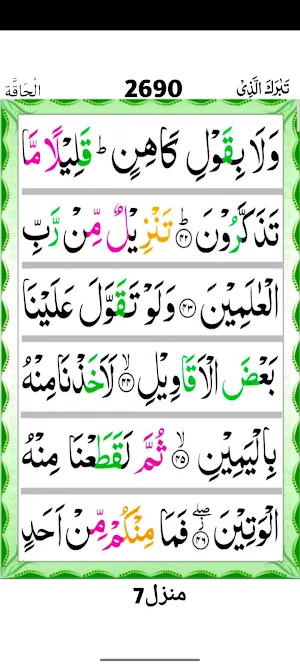 تَبٰرَكَ الَّذِىْ 2690 الْحَاقَّة
وَلَا بِقَوْلِ كَاهِنٍ ؕ قَلِيْلًا مَّا
تَذَكَّرُوْنَ ؕ ﴿۴۲﴾ تَنْزِيْلٌ مِّنْ رَّبِّ
الْعٰلَمِيْنَ ﴿۴۳﴾ وَلَوْ تَقَوَّلَ عَلَيْنَا
بَعْضَ الْاَقَاوِيْلِ ۙ ﴿۴۴﴾ لَاَخَذْنَا مِنْهُ
بِالْيَمِيْنِ ۙ ﴿۴۵﴾ ثُمَّ لَقَطَعْنَا مِنْهُ
الْوَتِيْنَ ۖ ز ﴿۴۶﴾ فَمَا مِنْكُمْ مِّنْ اَحَدٍ
منزل7